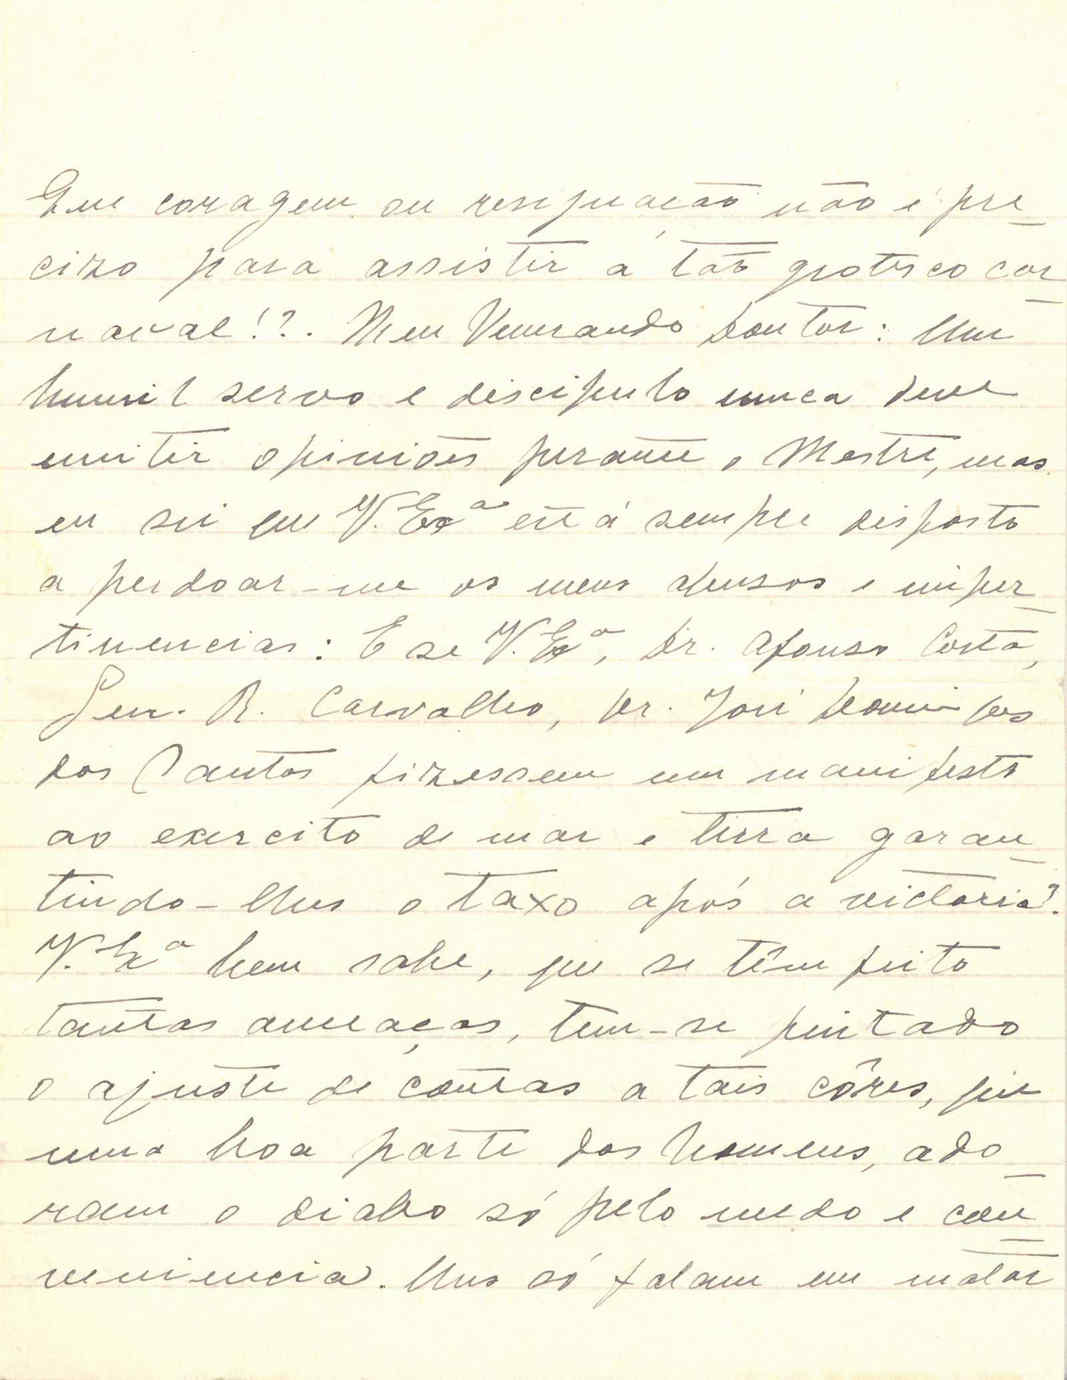 Que coragem ou resignação não é pre
cizo para assistir a tão grotesco car
naval!?. Meu Venerando Doutor: Um
humil servo e discipulo nunca deve
emitir opiniões perante o Mestre, mas
eu sei que V. Exª está sempre disposto
a perdoar-me os meus abusos e imper
tinencias: E se V. Exª, Dr. Afonso Costa,
Gen. R. Carvalho, Dr. José Domingos
dos Santos fizessem um manifesto
ao exercito de mar e terra garan
tindo-lhes o taxo após a victoria?.
V. Exª bem sabe, que se têm feito
tantas ameaças, tem-se pintado
o ajuste de contas a tais côres, que
uma boa parte dos homens, ado
ram o diabo só pelo medo e con
veniencia. Uns só falam em matar